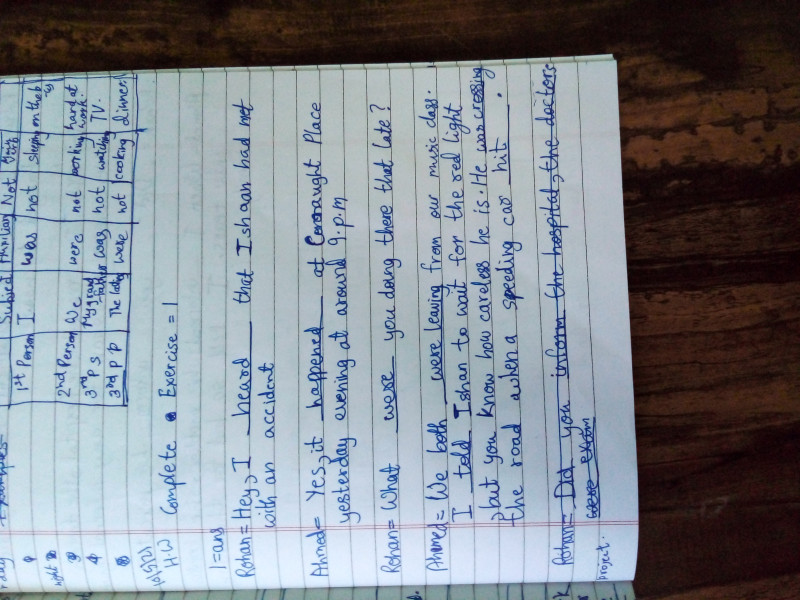 Subject Auxiliary Not
1st Person I was not sleeping on the b
2nd Person We were not working hard at work.
3rd P S My grand father was not watching TV.
3rd P P The were not cooking dinner
H.W Complete Exercise = 1
1=ans
Rohan= Hey, I heard that Ishaan had met
with an accident
Ahmed= Yes, it happened at Connaught Place
yesterday evening at around 9.p.m
Rohan= What were you doing there that late?
Ahmed= We both were leaving from our music class.
I told Ishan to wait for the red light
but you know how careless he is. He was crossing
the road when a speeding car hit.
Rohan= Did you inform the hospital, the doctors
were
project.